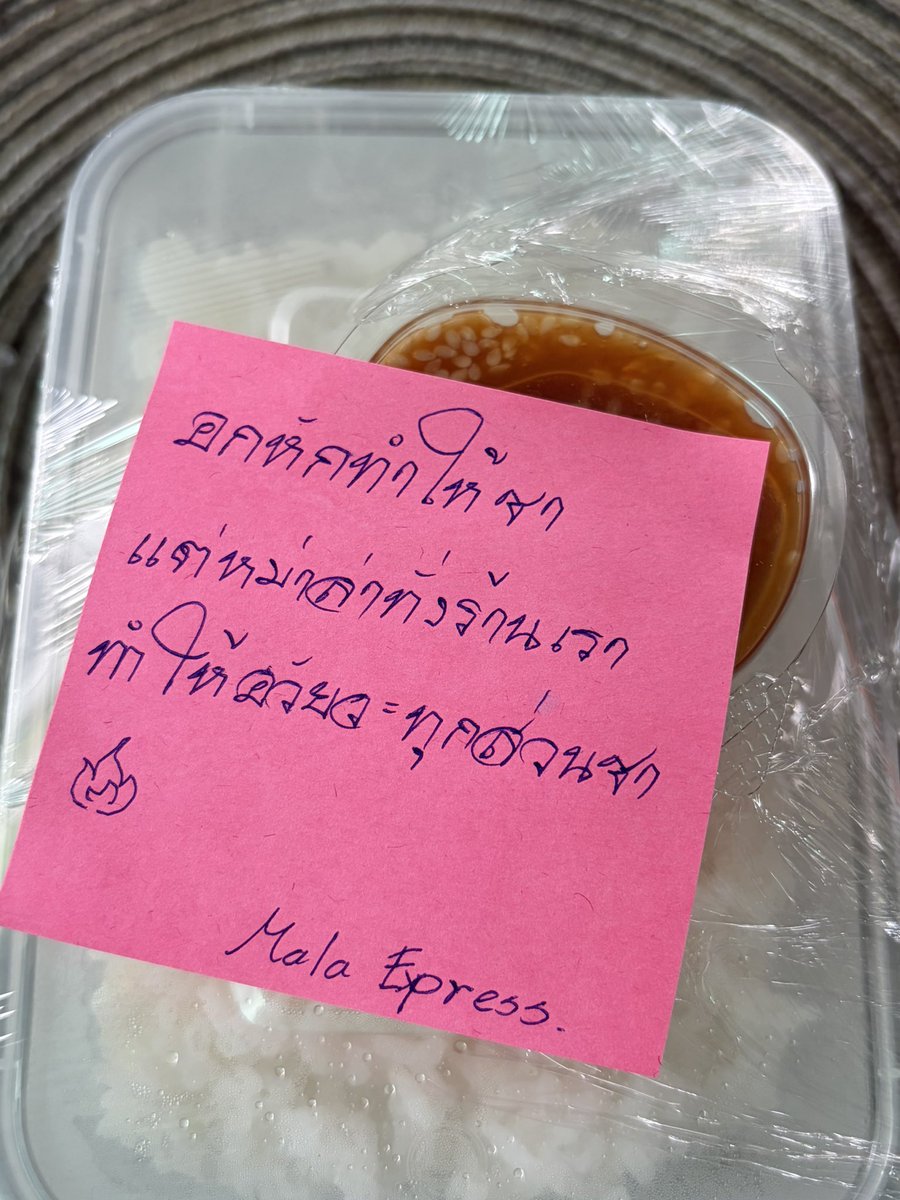 อกหักทำให้ชา
แต่หม่าล่าทั่งร้านเรา
ทำให้อวัยวะทุกส่วนชา
Mala Epress.